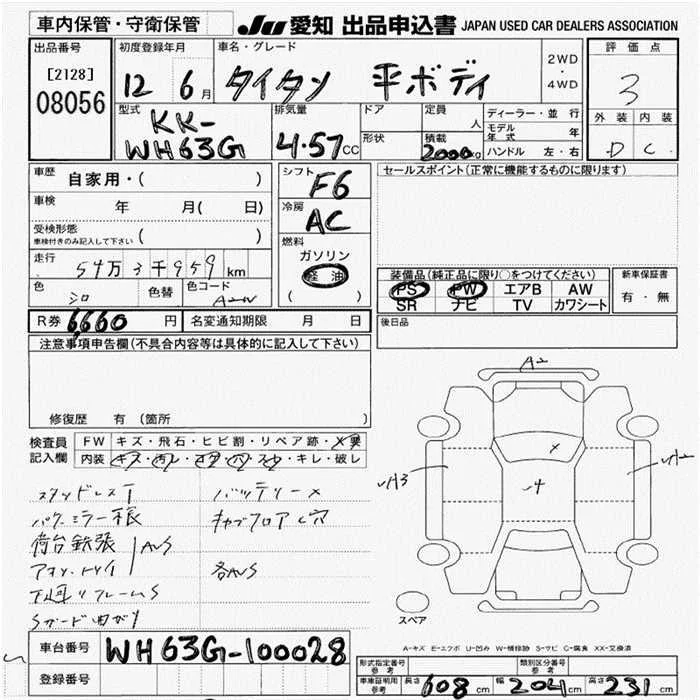 車内保管・守衛保管
JU 愛知 出品申込書 JAPAN USED CAR DEALERS ASSOCIATION
出品番号 初度登録年月 車名・グレード 評価点
[2128]
08056
12 6月 タイタン 平ボディ 2WD・4WD 3
型式 排気量 ドア 定員 ディーラー・並行 外装 内装
KK-
WH63G 4.57CC 形状 人 モデル年式 年 D C
積載 2000kg ハンドル 左・右
車歴 自家用・( ) シフト F6 セールスポイント(正常に機能するものに限ります)
車検 年 月( 日) 冷房 AC
受検形態 ( )
車検付きのみ記入して下さい
燃料 ガソリン
軽油
( )
走行 54万3千959km
色 シロ 色替 色コード
装備品(純正品に限り○をつけてください) 新車保証書
PS PW エアB AW 有・無
SR ナビ TV カワシート
R券 6,660円 名変通知期限 月 日 後日品
注意事項申告欄(不具合内容等は具体的に記入して下さい)
修復歴 有 (箇所 )
検査員 FW キズ・飛石・ヒビ割・リペア跡・X要
記入欄 内装 キズ・汚レ・コゲ・穴・スレ・キレ・破レ
A2
X
スタッドレスT バッテリーX
バックミラー キャブフロアC穴
荷台鉄張
各AS
スペア
A-キズ E-エクボ U-凹み W-補修跡 S-サビ C-腐食 XX-交換済
車台番号 WH63G-100028
登録番号
形式指定番号 参考 類別区分番号 参考
車庫証明用 参考 長さ 608cm 幅 204cm 高さ 231cm